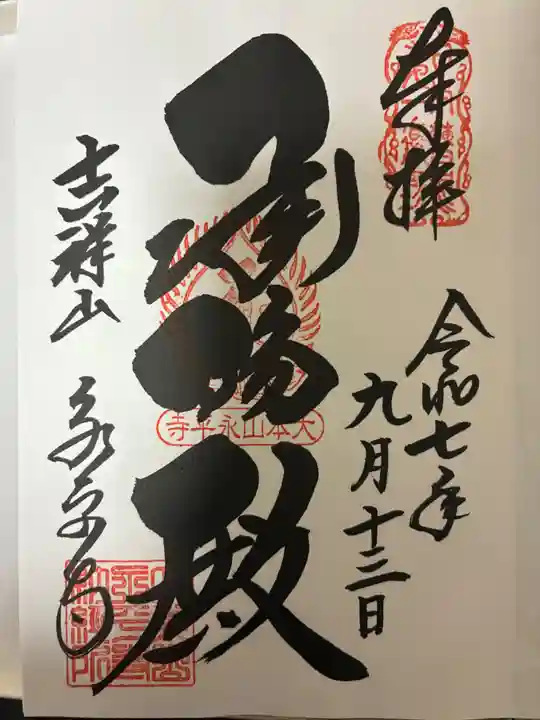 奉拝
令和七年
九月十三日
承陽殿
大本山永平寺
吉祥山 永平寺